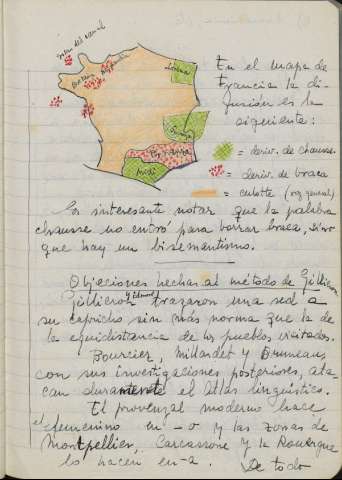 Islas del canal
Bretaña
Normandía
Lorena
Saboya
Provenza
Midi
En el mapa de
Francia la di-
fusión es la
siguiente:
= deriv. de chausse.
= deriv. de braca
= culotte (voz general)
Es interesante notar que la palabra
chausse no entró para borrar braca, sino
que hay un bisemantismo.
Objeciones hechas al método de Gilliéron
Gilliéron y Edmont trazaron una red a
su capricho sin más norma que la de
la equidistancia de los pueblos visitados.
Bourciez, Millardet y Bruneau,
con sus investigaciones posteriores, ata-
can duramente el Atlas lingüístico.
El provenzal moderno hace
el femenino en -o y las zonas de
Montpellier, Carcassone y la Rouergue
lo hacen en -a. De todo